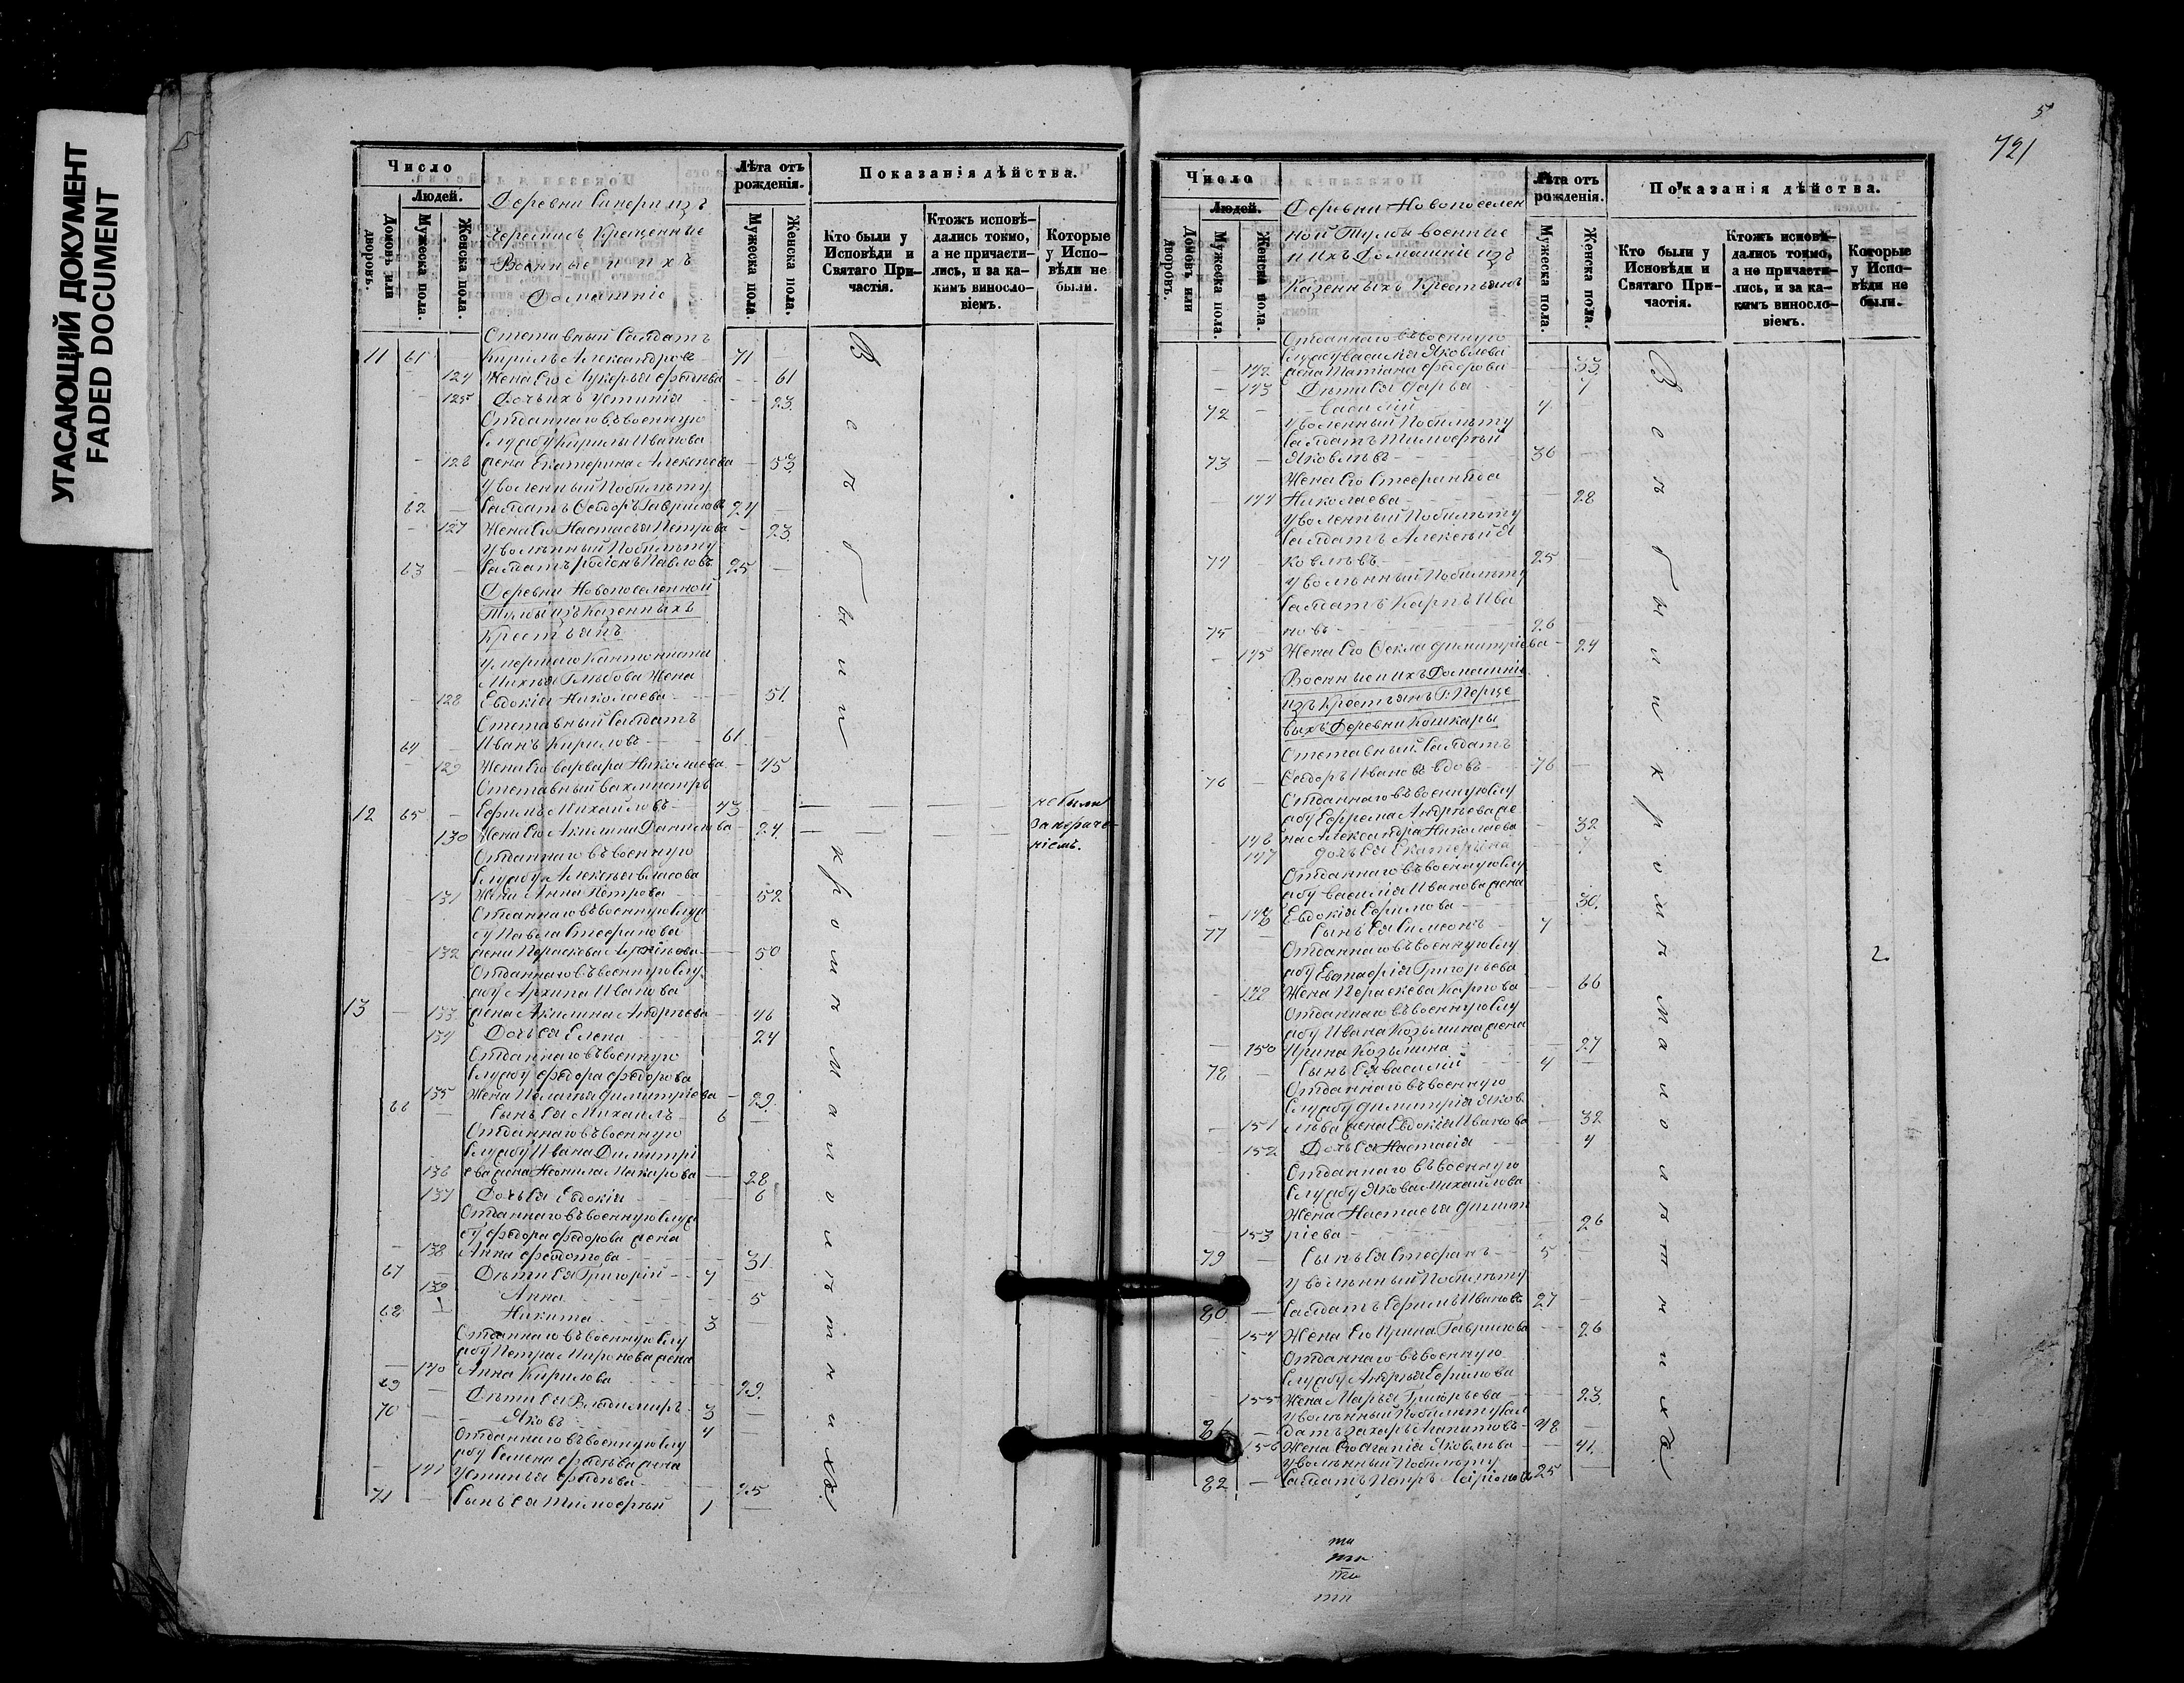 УГАСАЮЩИЙ ДОКУМЕНТ
FADED DOCUMENT
Число
Людей.
Домовъ или дворовъ.
Мужеска пола.
Женска пола.
Деревни из
Черемисъ Крещенные
Военные и ихъ
Домашніе
Лѣта отъ рожденія.
Мужеска пола.
Женска пола.
Показанія дѣйства.
Кто были у Исповѣди и Святаго Причастія.
Ктожъ исповѣдались токмо, а не причастились, и за какимъ винословіемъ.
Которые у Исповѣди не были.
Отставный Салдатъ
11 61 Кирилъ Александровъ 71
124 Жена Его Лукерья 61
125 Дочь ихъ Устинія 23
Отданнаго въ военную
Службу Кирилы Иванова
126 жена Екатерина Алексѣева 53
Уволенный по билѣту
62 Салдатъ Ѳедоръ Гавриловъ 24
127 Жена Его Настасья Петрова 23
Уволѣнный по билѣту
63 Салдатъ Родіонъ Павловъ 25
Деревни Новопоселенной
Тумъи изъ Казенныхъ
Крестьянъ
умершаго Кантониста
Михѣя Глѣбова Жена
128 Евдокія Николаева 51
Отставный Салдатъ
64 Иванъ Кириловъ 61
129 Жена Его Варвара Николаева 45
Отставный вахмистръ
12 65 Ефимъ Михайловъ 43 не были
130 Жена Его Акилина Данилова 24 за нераче-
ніемъ.
Отданнаго въ военную
Службу Алексѣя Власова
131 Жена Анна Петрова 52
Отданнаго въ военную Служ
бу Павла Стефанова
132 жена Параскева 50
Отданнаго въ военную Слу
жбу Архипа Иванова
13 133 жена Акилина Андрѣева 46
134 Дочь Ея Елена 24
Отданнаго въ военную
Службу Федора Федорова
135 Жена Пелагія Димитріева 29
66 Сынъ Ея Михаилъ 6
Отданнаго въ военную
Службу Ивана Димитрі
136 ева жена Неонила Макарова 28
137 Дочь Ея Евдокія 6
Отданнаго въ военную Служ
бу Федора Федорова жена
138 Анна Федотова 31
67 Дѣти Ея Григорій 7
139 Анна 5
68 Никита 3
Отданнаго въ военную Слу
жбу Петра Миронова жена
140 Анна Кирилова 29
69 Дѣти Ея Владимиръ 3
70 Яковъ 4
Отданнаго въ военную Слу
жбу Семена Фадѣева жена
141 Устинья Фадѣева 25
71 Сынъ Ея Тимофѣй 1
Всѣ были кромѣ малолѣтнихъ
5
721
Число
Людей.
Домовъ или дворовъ.
Мужеска пола.
Женска пола.
Деревни Новопоселен
ной Тумъи военные
и ихъ Домашніе изъ
Казенныхъ Крестьянъ
Лѣта отъ рожденія.
Мужеска пола.
Женска пола.
Показанія дѣйства.
Кто были у Исповѣди и Святаго Причастія.
Ктожъ исповѣдались токмо, а не причастились, и за какимъ винословіемъ.
Которые у Исповѣди не были.
Отданнаго въ военную
Службу Василія Яковлева
142 жена Татіана Федорова 33
143 Дѣти Ея Дарья 7
72 Василій 4
Уволенный По билѣту
Салдатъ Тимофѣй
73 Яковлѣвъ 36
Жена Его Стефанида
144 Николаева 28
Уволенный По билѣту
Салдатъ Алексѣй Я
74 ковлѣвъ 25
Уволѣнный По билѣту
Салдатъ Карпъ Ива
75 новъ 26
145 Жена Его Ѳекла Димитріева 24
Военные и ихъ Домашніе
изъ Крестьянъ Г:
выхъ Деревни Кошкары
Отставный Салдатъ
76 Ѳедоръ Ивановъ вдовъ 76
Отданнаго въ военную Слу
жбу Ефрема Андрѣева же
146 на Александра Николаева 32
147 дочь Ея Екатерина 7
Отданнаго въ военную Слу
жбу Василія Иванова жена
148 Евдокія Ефимова 30
77 Сынъ Ея Симеонъ 4
Отданнаго въ военную Слу
жбу Евтафія Григорьева
Жена Параскева Карпова 66
Отданнаго въ военную Слу
жбу Ивана Козьмина жена
150 Ирина Козьмина 27
78 Сынъ Ея Василій 4
Отданнаго въ военную
Службу Димитрія Яков
151 лѣва жена Евдокія Иванова 32
152 Дочь Ея Настасія 4
Отданнаго въ военную
Службу Якова Михайлова
Жена Настасья Димит
153 ріева 26
79 Сынъ Ея Стефанъ 5
Уволѣнный По билѣту
80 Салдатъ Ефимъ Ивановъ 27
154 Жена Его Ирина Гаврилова 26
Отданнаго въ военную
Службу Андрѣя Ефимова
155 Жена Марья Григорьева 23
Уволѣнный По билѣту Сал
81 датъ Захаръ 48
156 Жена Его Агапія Яковлѣва 41
Уволѣнный По билѣту
82 Салдатъ Петръ 25
Всѣ были кромѣ малолѣтнихъ
2